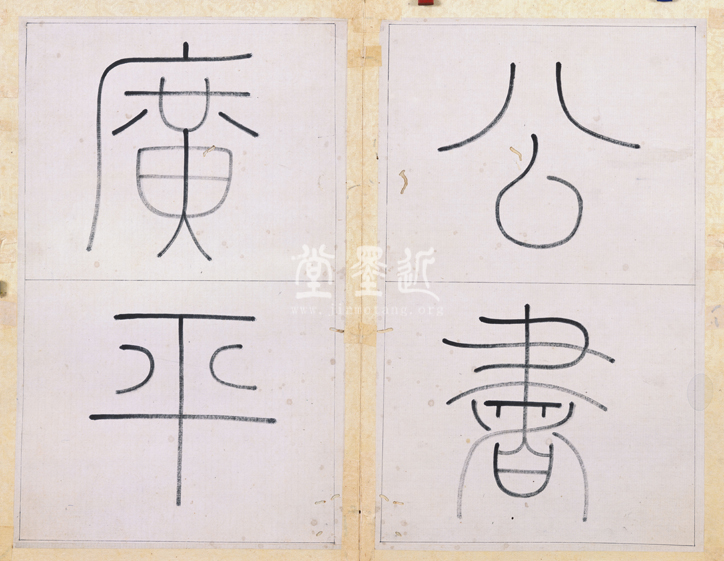 公書
廣平
近墨堂
www.jinmotang.org